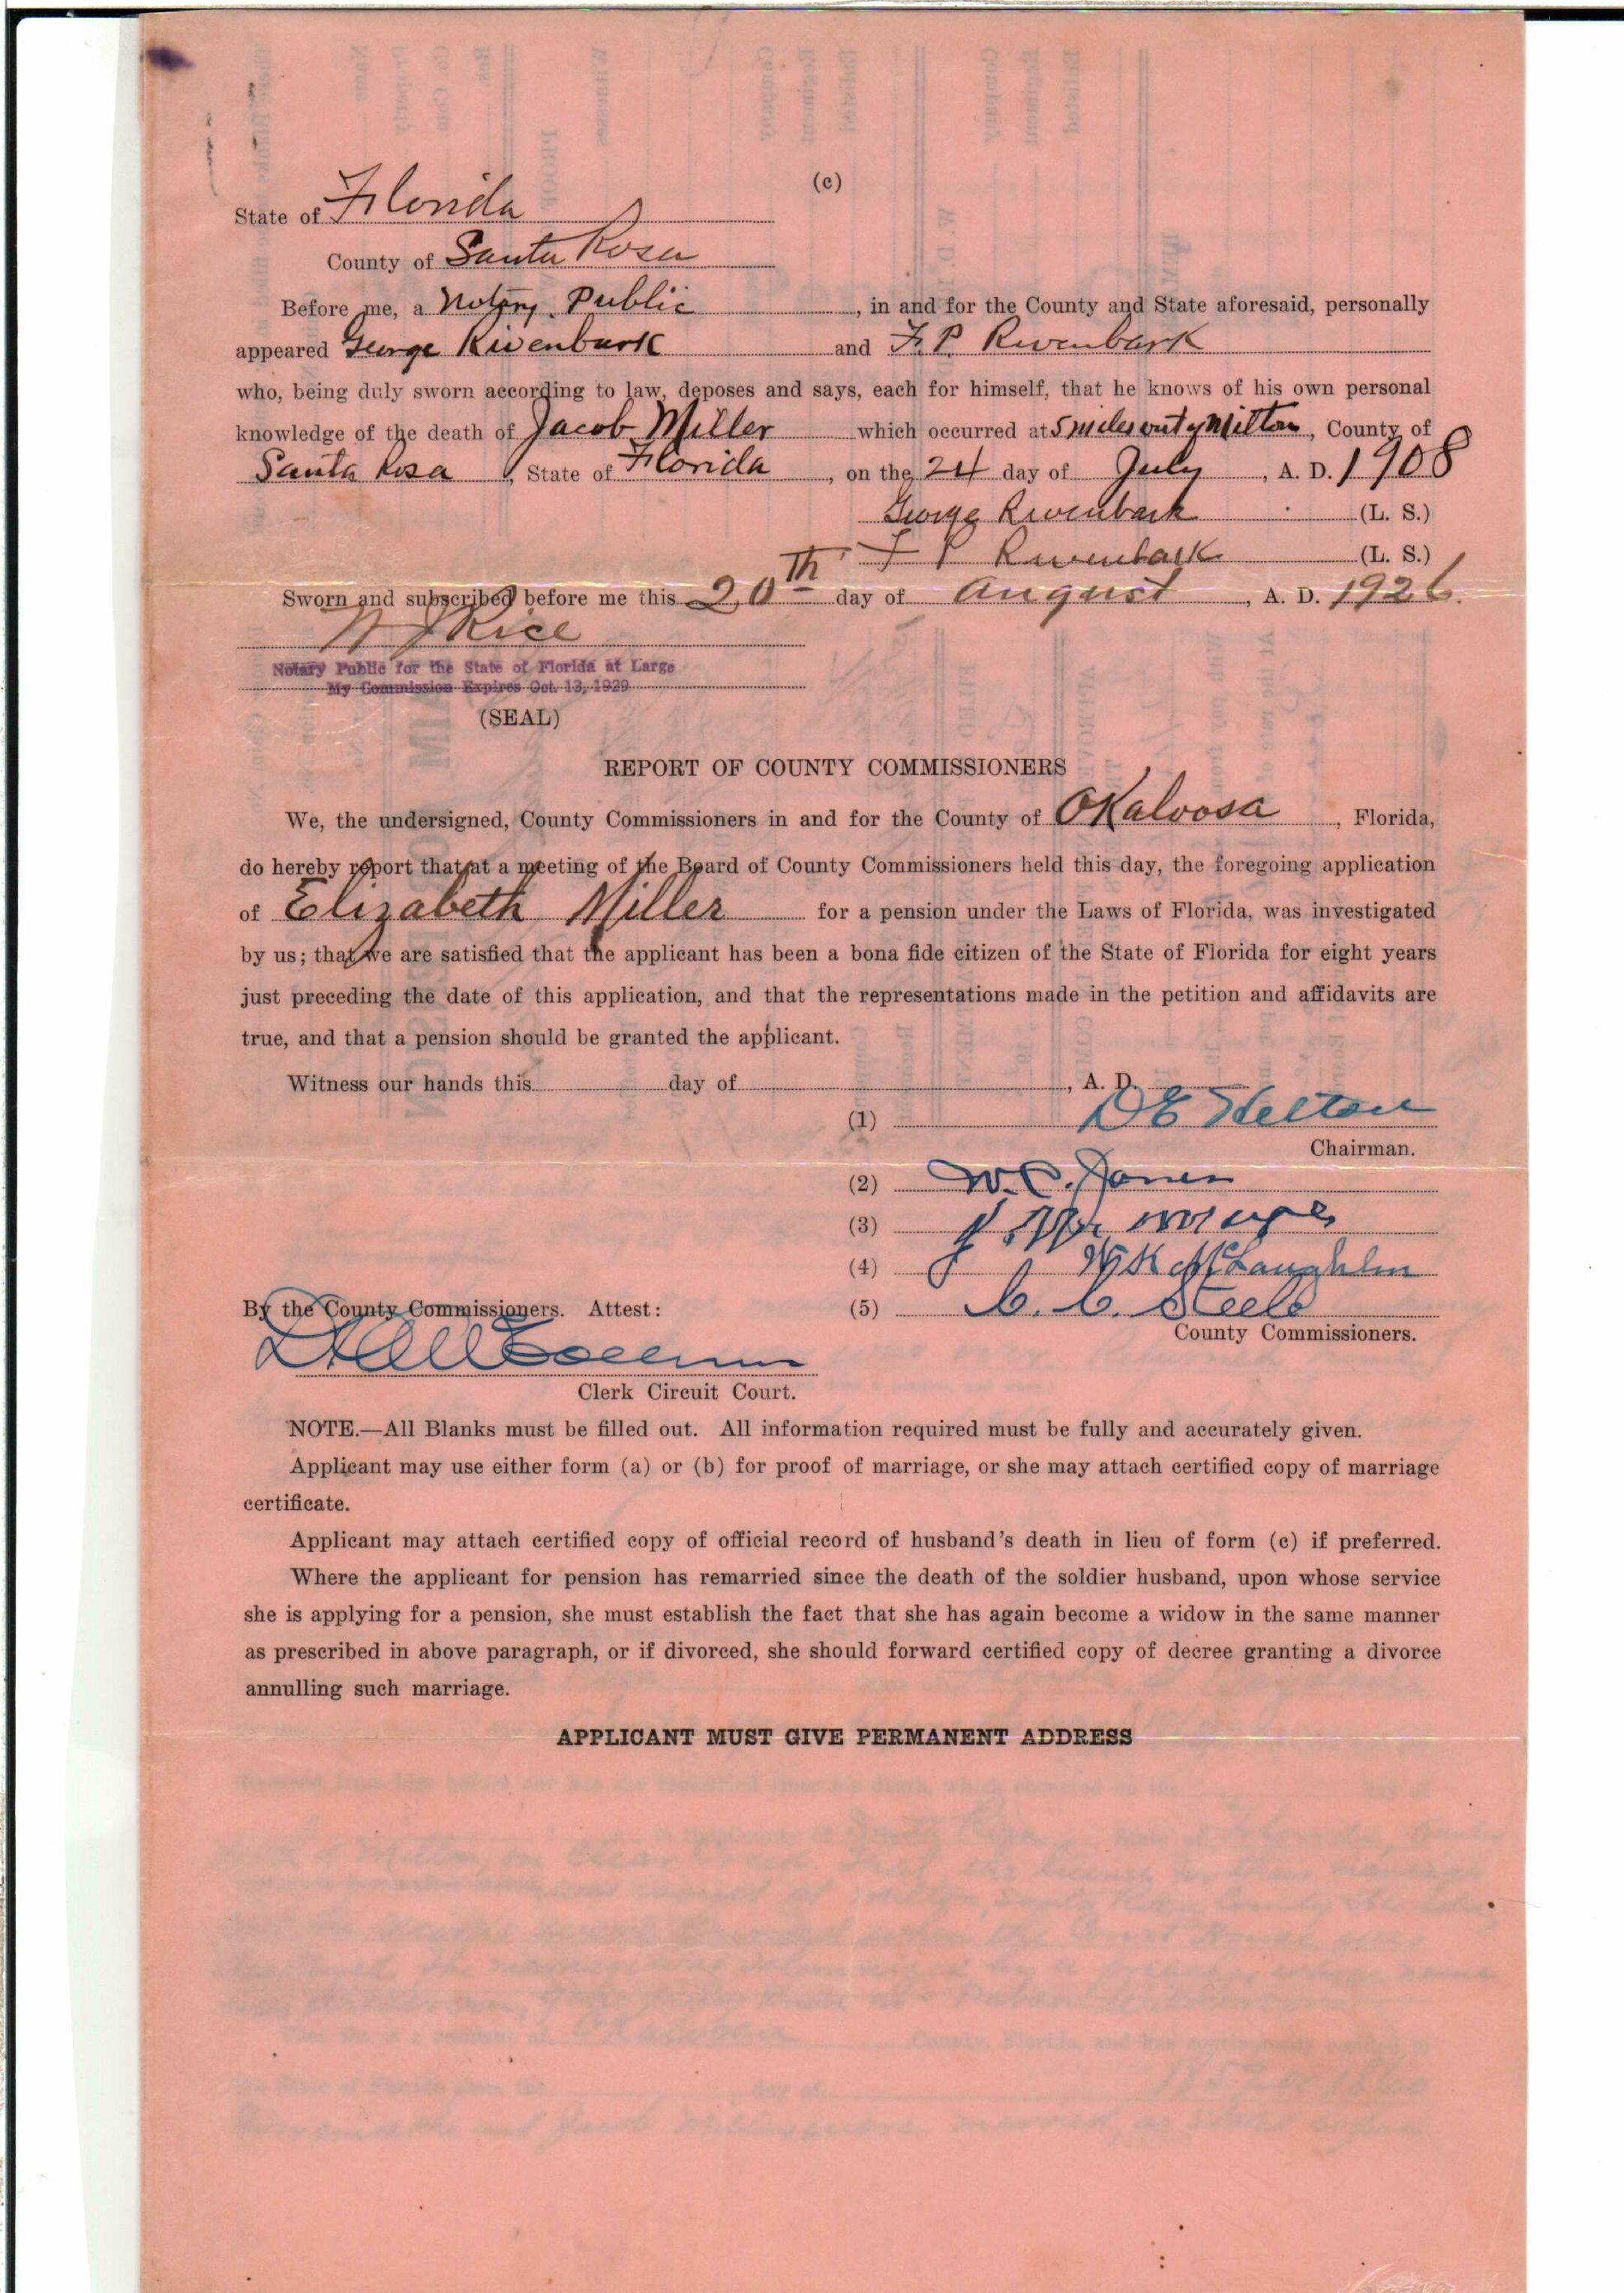 (c)
State of Florida
County of Santa Rosa
Before me, a Notary Public, in and for the County and State aforesaid, personally
appeared George Rivenbark and F. P. Rivenbark
who, being duly sworn according to law, deposes and says, each for himself, that he knows of his own personal
knowledge of the death of Jacob Miller which occurred at 5 miles out of Milton, County of
Santa Rosa, State of Florida, on the 24 day of July, A. D. 1908
George Rivenbark (L. S.)
F P Rivenbark (L. S.)
Sworn and subscribed before me this 20th day of August, A. D. 1926.
Rice
Notary Public for the State of Florida at Large
My Commission Expires Oct. 13, 1929
(SEAL)
REPORT OF COUNTY COMMISSIONERS
We, the undersigned, County Commissioners in and for the County of Okaloosa, Florida,
do hereby report that at a meeting of the Board of County Commissioners held this day, the foregoing application
of Elizabeth Miller for a pension under the Laws of Florida, was investigated
by us; that we are satisfied that the applicant has been a bona fide citizen of the State of Florida for eight years
just preceding the date of this application, and that the representations made in the petition and affidavits are
true, and that a pension should be granted the applicant.
Witness our hands this day of , A. D.
(1) D E Helton
Chairman.
(2) W. C. Jones
(3)
(4) W K McLaughlin
By the County Commissioners. Attest:
(5) C. C. Steele
County Commissioners.
Clerk Circuit Court.
NOTE.—All Blanks must be filled out. All information required must be fully and accurately given.
Applicant may use either form (a) or (b) for proof of marriage, or she may attach certified copy of marriage
certificate.
Applicant may attach certified copy of official record of husband's death in lieu of form (c) if preferred.
Where the applicant for pension has remarried since the death of the soldier husband, upon whose service
she is applying for a pension, she must establish the fact that she has again become a widow in the same manner
as prescribed in above paragraph, or if divorced, she should forward certified copy of decree granting a divorce
annulling such marriage.
APPLICANT MUST GIVE PERMANENT ADDRESS